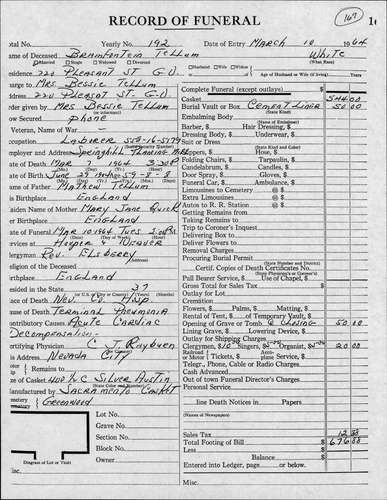 RECORD OF FUNERAL
167
otal No. Yearly No. 192 Date of Entry March 10 1964
me of Deceased Tellum White
Married Single Widowed Divorced Husband Wife Widow (What Race)
esidence 220 Pleasant St. G.V. Age of Husband or Wife (if living) Years
arge to Mrs. Bessie Tellum
ddress 220 Pleasant St. G.V.
order given by Mrs Bessie Tellum
ow Secured Phone
Veteran, Name of War -
ccupation Laborer
mployer and Address Springhill Planing Mill
ate of Death Mar 7 1964 3:30 P
ate of Birth June 29
me of Father Mathew Tellum
is Birthplace England
aiden Name of Mother Mary Jane Quick
er Birthplace England
ate of Funeral Mar 10 1964 Tues
ervices at Hooper & Weaver
lergyman Rev. Elsberry
eligion of the Deceased
irthplace England
esided in the State 37
lace of Death Nev. Co. Hosp.
ause of Death Terminal Pneumonia
ontributory Causes Acute Cardiac
Decompensation
ertifying Physician C J Rayburn
is Address Nevada City
Remains to
e of Casket Silver Austin
anufactured by Sacramento Casket
metery Greenwood
Lot No.
Grave No.
Section No.
Block No.
Owner
Diagram of Lot or Vault
Complete Funeral (except outlays) $
Casket 544.00
Burial Vault or Box Cement Liner 50 00
(State Kind)
Embalming Body
Barber, $ Hair Dressing, $
Dressing Body, $ Underwear, $
Suit or Dress
(State Kind and Color)
Slippers, $ Hose, $
Folding Chairs, $ Tarpaulin, $
Candelabrum, $ Candles, $
Door Spray, $ Gloves, $
Funeral Car, $ Ambulance, $
Limousines to Cemetery @ $
Extra Limousines @ $
Autos to R. R. Station @ $
Getting Remains from
Taking Remains to
Trip to Coroner's Inquest
Delivering Box to
Deliver Flowers to
Removal Charges
Procuring Burial Permit
(State Number and District)
Certif. Copies of Death Certificate No.
Pall Bearer Service, $ Use of Chapel, $
Gross Total for Sales Tax $
Outlay for Lot
Cremation
Flowers, $ Palms, $ Matting, $
Rental of Tent, $ of Temporary Vault, $
Opening of Grave or Tomb & Closing 50.00
Lining Grave, $ Lowering Device, $
Outlay for Shipping Charges
Clergymen, $ 10 Singers, $ 5.00 Organist, $ 5.00 20 00
Railroad or Motor Tickets, $ Aeroplane Service, $
Telgr., Phone, Cable or Radio Charges
Cash Advanced
Out of town Funeral Director's Charges
Personal Service
line Death Notices in Papers
(Names of Newspapers)
Sales Tax 12 00
Total Footing of Bill $ 676 00
Less
Balance
Entered into Ledger, page or below.
Misc.